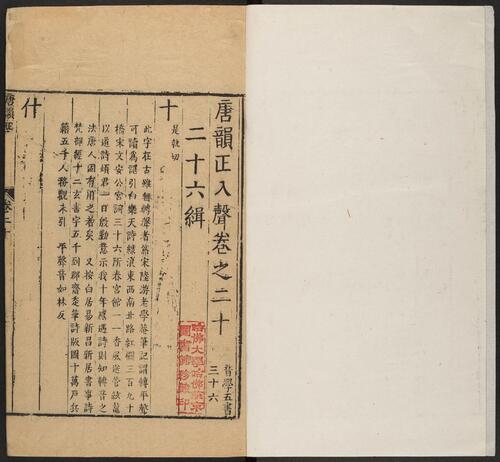 唐韻正入聲卷之二十
音學五書
三十六
二十六緝
十
是執切
此字在古雖無轉聲者然宋陸游老學菴筆記謂轉平聲
可讀為諶引白樂天詩綠浪東西南北路紅欄三百九十
橋宋文安公宮詞三十六所春宮館一一香風送管絃晁
以道詩煩君一日殷勤意示我十年感遇詩則知轉音之
法唐人固有用之者矣 又按白居易新昌新居書事詩
梵部經十二玄書字五千到郡齋走筆詩版圖十萬戶兵
籍五千人務觀未引 平聲音如林反
什
唐韻正
卷二十
哈佛大學哈佛燕京
圖書館珍藏印